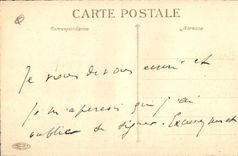 CARTE POSTALE
Correspondance
Adresse
Je viens de vous écrire et
je m'aperçois que j'ai
oublié de signer. Excusez moi